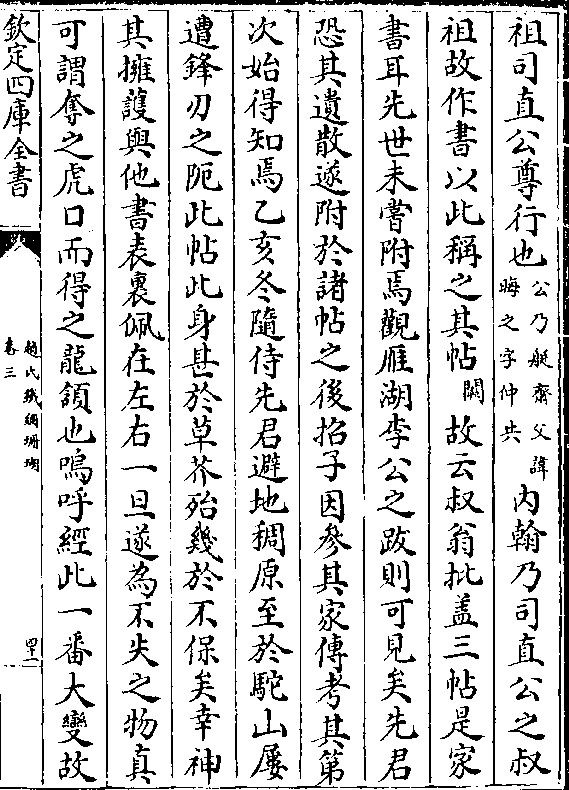 祖司直公尊行也公乃艇齋父諱晦之字仲共内翰乃司直公之叔
祖故作書以此稱之其帖闕故云叔翁批盖三帖是家
書耳先世未嘗附焉觀雁湖李公之跋則可見矣先君
恐其遺散遂附於諸帖之後招子因參其家傳考其第
次始得知焉乙亥冬隨侍先君避地稠原至於駝山屢
遭鋒刃之阨此帖此身甚於草芥殆幾於不保矣幸神
其擁護與他書表裏佩在左右一旦遂為不失之物真
可謂奪之虎口而得之龍頷也嗚呼經此一番大變故
欽定四庫全書
趙氏鐵網珊瑚
卷三
四十二